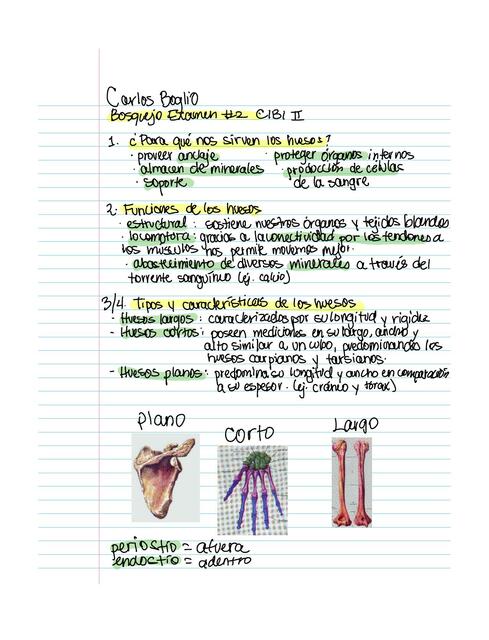 Carlos Boglio
Bosquejo Examen #2 CIBI II
1. ¿Para qué nos sirven los huesos?
· proveer anclaje · proteger órganos internos
· almacen de minerales · producción de células
· soporte de la sangre
2. Funciones de los huesos
· estructural: sostiene nuestros órganos y tejidos blandos
· locomotora: gracias a la conectividad por los tendones a
los musculos nos permite movernos mejor.
· abastecimiento de diversos minerales a través del
torrente sanguíneo (ej. calcio)
3/4. Tipos y características de los huesos
- Huesos largos: caracterizados por su longitud y rigidez
- Huesos cortos: poseen mediciones en su largo, ancho y
alto similar a un cubo, predominando los
huesos carpianos y tarsianos.
- Huesos planos: predomina su longitud y ancho en comparación
a su espesor. (ej. cráneo y tórax)
plano
corto
Largo
periostio = afuera
endostio = adentro